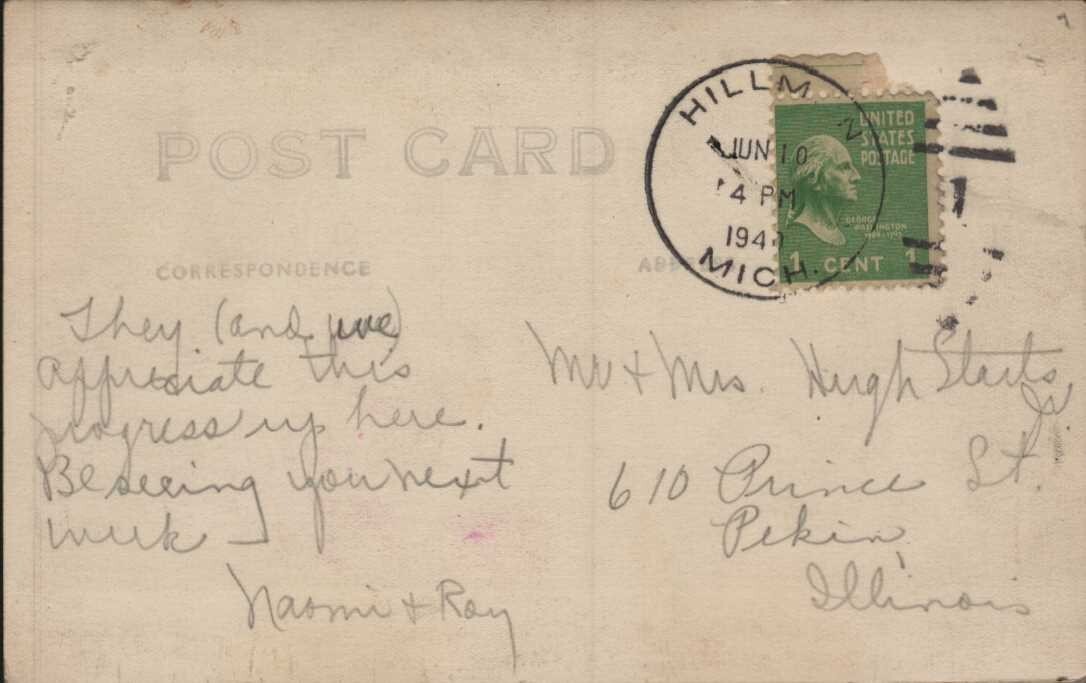 POST CARD
HILLM
JUN 10
4 PM
194
MICH.
UNITED
STATES
POSTAGE
GEORGE
WASHINGTON
1 CENT 1
CORRESPONDENCE
They (and we)
appreciate this
progress up here.
Be seeing you next
week —
Naomi & Ray
Mr & Mrs. Hugh
Jr.
610 Prince St.
Pekin,
Illinois